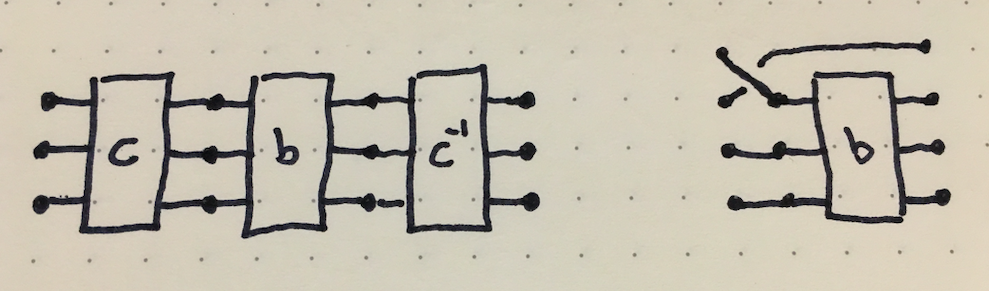 c b c⁻¹ b